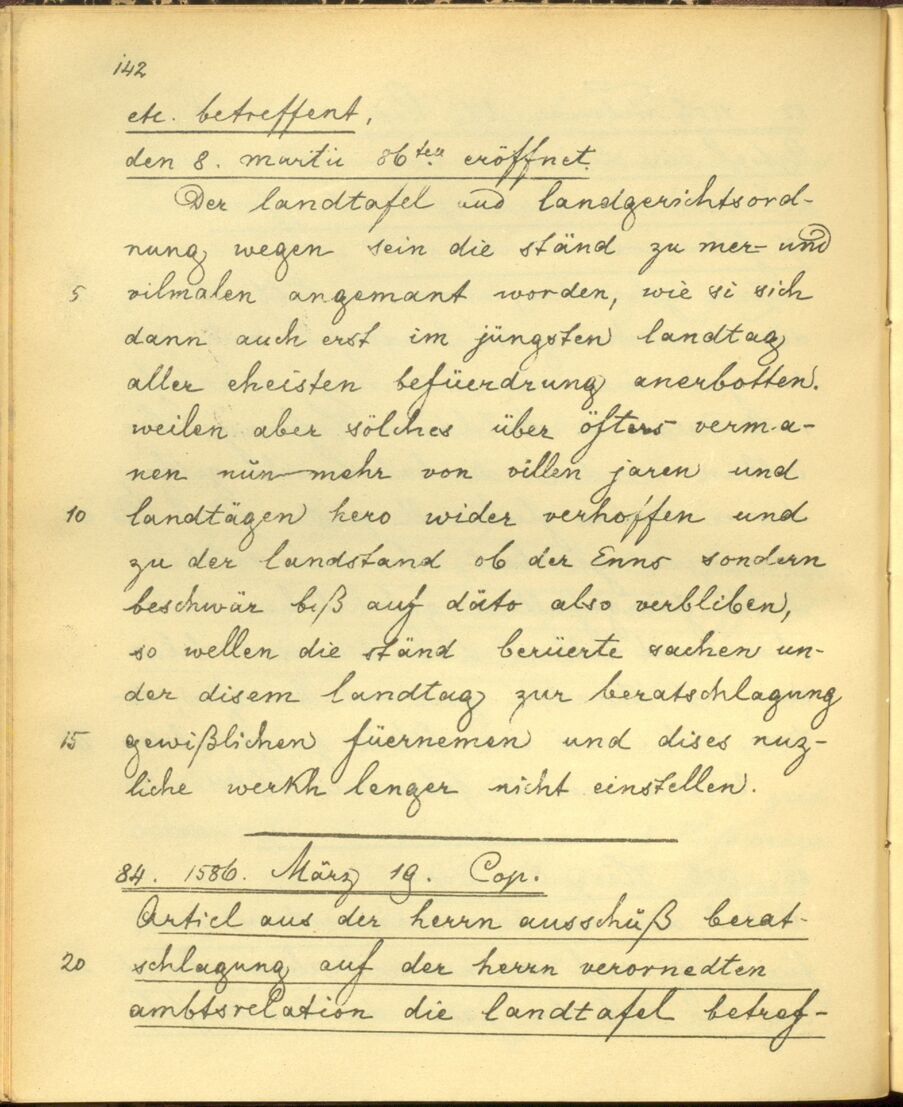 142
etc. betreffent,
den 8. martii 86ten eröffnet.
Der landtafel und landgerichtsord-
nung wegen sein die ständ zu mer- und
5 vilmalen angemant worden, wie si sich
dann auch erst im jüngsten landtag
aller eheisten befüerdrung anerbotten.
weilen aber sölches über öfters verma-
nen nun mehr von villen jaren und
10 landtägen hero wider verhoffen und
zu der landstand ob der Enns sondern
beschwär biß auf däto also verbliben,
so wellen die ständ berüerte sachen un-
der disem landtag zur beratschlagung
15 gewißlichen füernemen und dises nuz-
liche werkh lenger nicht einstellen.
84. 1586. März 19. Cop.
Articl aus der herrn ausschüß berat-
20 schlagung auf der herrn verornedten
ambtsrelation die landtafel betref-